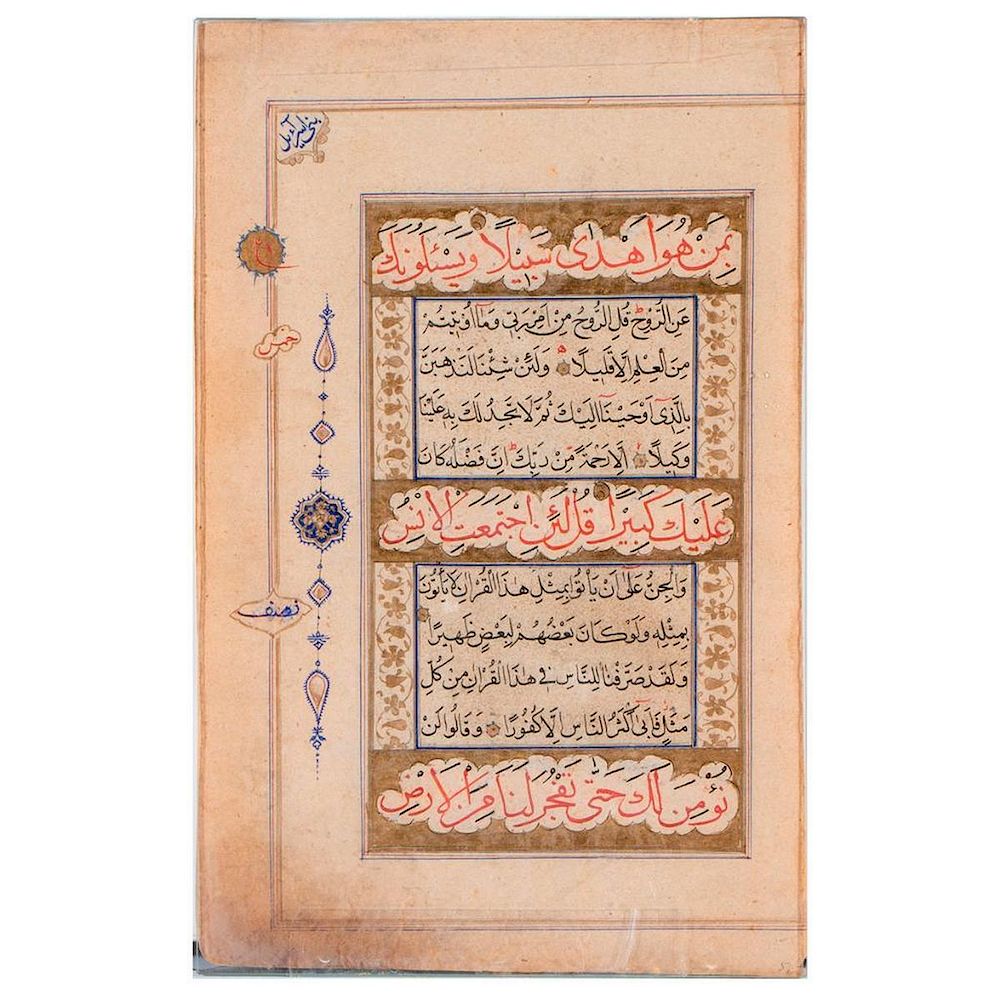 بنی اسرآئیل
بِمَنْ هُوَ اَهْدٰى سَبٖيلًا وَيَسْئَلُونَكَ
عَنِ الرُّوحِ قُلِ الرُّوحُ مِنْ اَمْرِ رَبّٖى وَمَآ اُوتٖيتُمْ
مِنَ الْعِلْمِ اِلَّا قَلٖيلًا وَلَئِنْ شِئْنَا لَنَذْهَبَنَّ
بِالَّذٖىٓ اَوْحَيْنَآ اِلَيْكَ ثُمَّ لَا تَجِدُ لَكَ بِهٖ عَلَيْنَا
وَكٖيلًا اِلَّا رَحْمَةً مِنْ رَبِّكَ اِنَّ فَضْلَهُ كَانَ
عَلَيْكَ كَبٖيرًا قُلْ لَئِنِ اجْتَمَعَتِ الْاِنْسُ
وَالْجِنُّ عَلٰٓى اَنْ يَاْتُوا بِمِثْلِ هٰذَا الْقُرْاٰنِ لَا يَاْتُونَ
بِمِثْلِهٖ وَلَوْ كَانَ بَعْضُهُمْ لِبَعْضٍ ظَهٖيرًا
وَلَقَدْ صَرَّفْنَا لِلنَّاسِ فٖى هٰذَا الْقُرْاٰنِ مِنْ كُلِّ
مَثَلٍ فَاَبٰٓى اَكْثَرُ النَّاسِ اِلَّا كُفُورًا وَقَالُوا لَنْ
نُؤْمِنَ لَكَ حَتّٰى تَفْجُرَ لَنَا مِنَ الْاَرْضِ
نصف